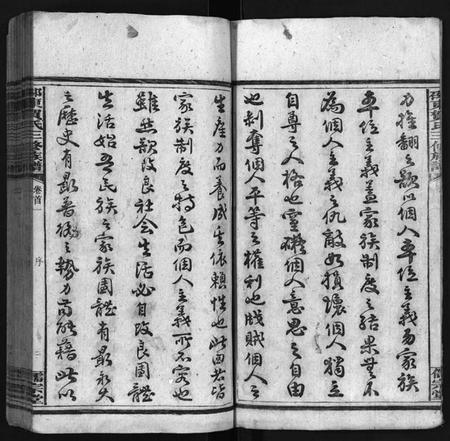 力推翻之欲以個人平位主義易家族
平位主義蓋家族制度之結果無不
為個人主義之仇敵如損壞個人獨立
自尊之人格也靈礙個人意思之自由
也剝奪個人平等之權利也戕賊個人之
生產力而養成生依賴性也此四者皆
家族制度之特色而個人主義所不容也
雖然欲改良社會生活必自改良國體
生活始吾民族之家族團體有最永久
之歷史有最普徧之勢力苟能藉此以
邵東賀氏三修族譜
卷首
序